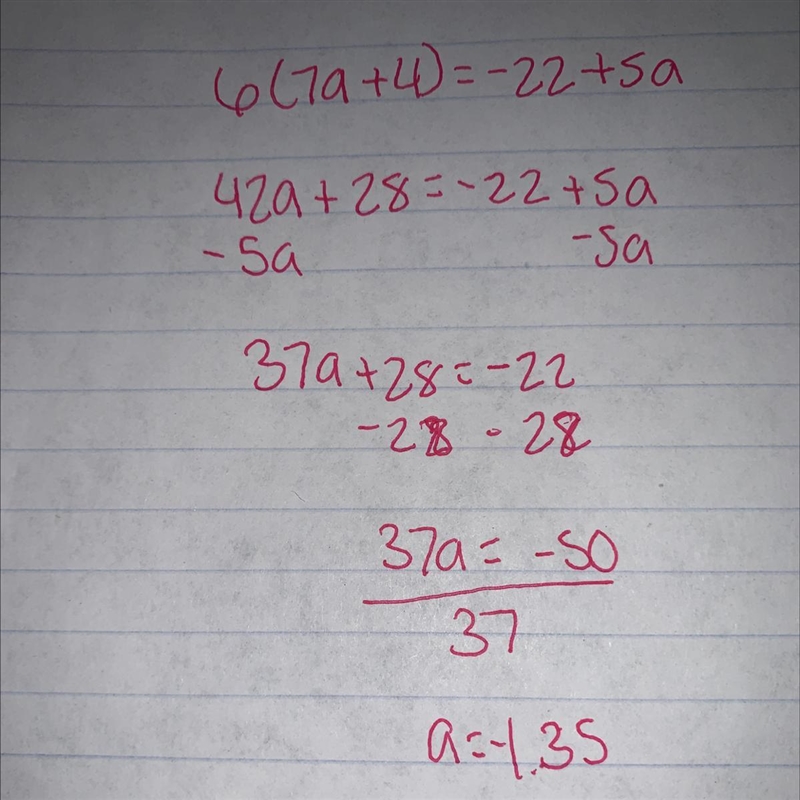 6(7a+4)=-22+5a
42a+28=-22+5a
-5a -5a
37a+28=-22
-28 -28
37a=-50
37
a=-1.35